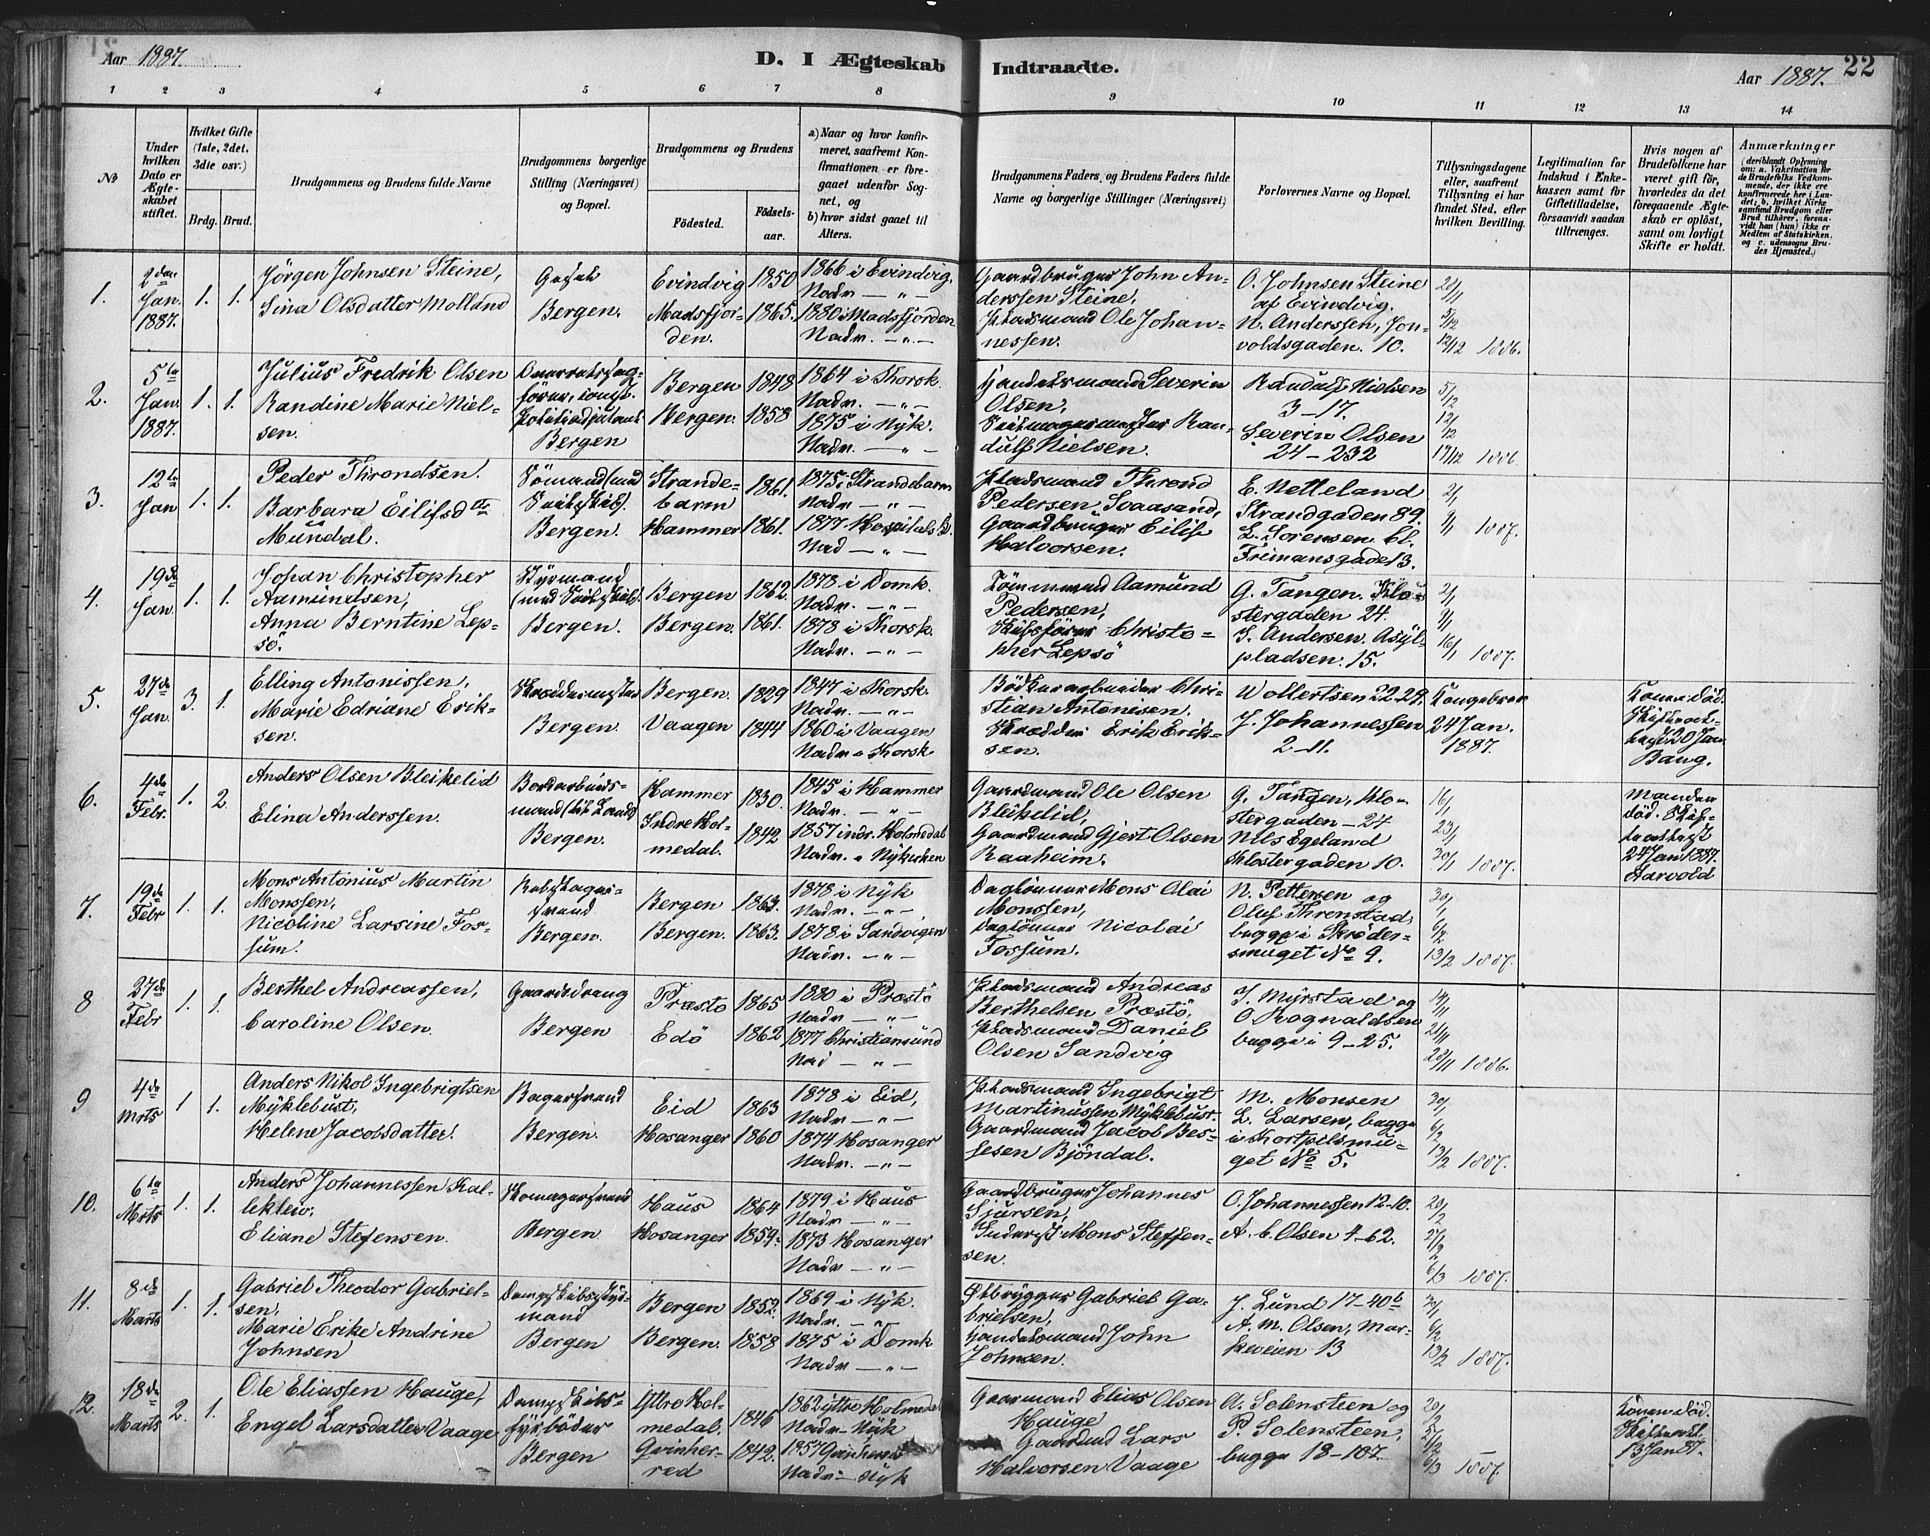 Aar 1887.
D. I Ægteskab Indtraadte.
Aar 1887. 22
1 2 3 4 5 6 7 8 9 10 11 12 13 14
No
Under hvilken Dato er Ægteskabet stiftet.
Hvilket Gifte (1ste, 2det, 3die osv.)
Brdg. Brud.
Brudgommens og Brudens fulde Navne
Brudgommens borgerlige Stilling (Næringsvei) og Bopæl.
Brudgommens og Brudens
Fødested. Fødselsaar.
a) Naar og hvor konfirmeret, saafremt Konfirmationen er foregaaet udenfor Sognet, og
b) hvor sidst gaaet til Alters.
Brudgommens Faders og Brudens Faders fulde Navne og borgerlige Stillinger (Næringsvei)
Forlovernes Navne og Bopæl.
Tillysningsdagene eller, saafremt Tillysning ei har fundet Sted, efter hvilken Bevilling.
Legitimation for Indskud i Enkekassen samt for Giftetilladelse, forsaavidt saadan tiltrænges.
Hvis nogen af Brudefolkene har været gift før, hvorledes da det foregaaende Ægteskab er opløst, samt om lovligt Skifte er holdt.
Anmærkninger
(deriblandt Oplysning om: a. Vakcination for de Brudefolks Vedkommende, der ikke ere konfirmerede her i Landet; b. hvilket Kirkesamfund Brudgom eller Brud tilhører, forsaavidt han (hun) ikke er Medlem af Statskirken, og c. udensogns Brudes Hjemsted.)
1. 2den Jan. 1887. 1. 1.
Jörgen Johnsen Steine,
Sina Olsdatter Molland
Bergen.
Evindvig 1850
Madsfjorden. 1865.
1866 i Evindvig.
Nadv. — „ —
1880 i Madsfjorden
Nadv. — „ —
Gaardbruger John Anderssen Steine,
Pladsmand Ole Johannessen.
O. Johnsen Steine
af Evindvig.
N. Anderssen, Jonvoldsgaden. 10.
5/12
12/12 1886.
2. 5te Jan. 1887. 1. 1.
Julius Fredrik Olsen
Randine Marie Nielsen.
Bergen
Bergen 1848
Bergen 1858
1864 i Thorsk.
Nadv. — „ —
1875 i Nÿk.
Nadv. — „ —
Severin Olsen,
Randulf Nielsen.
Randulf Nielsen
3—17.
Severin Olsen
24—232
5/12
12/12
19/12 1886
3. 12te Jan 1. 1.
Peder Throndsen.
Barbara Eilifsdtr Mundal.
Sömand (med Seilskib).
Bergen.
Strandebarm 1861.
Hammer 1861.
1875 i Strandebarm
Nadv. — „ —
1877 Hospitalsk.
Nad — „ —
Pladsmand Thrond Pedersen Soaasand,
Gaardbruger Eilif Halvorsen.
E. Netteland
Strandgaden 89.
L. Sörensen. Cl.
Frimansgade 13.
2/1
9/1 1887.
4. 19de Jan. 1. 1.
Johan Christopher Aamundsen,
Anna Berntine Lepsö.
Styrmand (med Seilskib).
Bergen.
Bergen 1862.
Bergen. 1861.
1878 i Domk.
Nadv. — „ —
1878 i Thorsk.
Nadv. — „ —
Tömmermand Aamund Pedersen,
Skibsförer Christopher Lepsö
G. Tangen. Klostergaden 24.
S. Andersen. Asÿlpladsen. 15.
2/1
9/1
16/1 1887.
5. 27de Jan. 3. 1.
Elling Antonissen,
Marie Edriane Eriksen.
Skræddermester
Bergen.
Bergen. 1829
Vaagen 1844
1847 i Thorsk.
Nadv. — „ —
1860 i Vaagen
Nadv. i Thorsk.
Bödkerarbeider Christian Antonisen.
Skrædder Erik Eriksen.
Wollertsen 22-24.
J. Johannessen
2—11.
Kongebrev
24 Jan.
1887.
Konen död.
20 Jan
Bang.
6. 4de Febr. 1. 2.
Anders Olsen Bleikelid
Elina Anderssen.
Bergen.
Hammer 1830.
Indre Holmedal. 1842
1845 i Hammer
Nadv. — „ —
1857 indr. Holmedal
Nadv. i Nÿkirken
Gaardmand Ole Olsen Bleikelid,
Gaardmand Gjert Olsen Raaheim.
G. Tangen, Klostergaden—24
Nils Egeland
Klostergaden 10.
16/1
23/1
30/1 1887.
Manden död.
24 Jan 1887.
Aarvold
7. 19de Febr 1. 1.
Mons Antonius Martin Monssen,
Nicoline Larsine Fossum.
Rebslagersvend
Bergen.
Bergen 1863.
Bergen. 1863.
1878 i Nÿk
Nadv. — „ —
1878 i Sandvigen
Nadv. — „ —
Daglönner Mons Olai Monssen,
Daglönner Nicolai Fossum.
N. Pettersen og
Oluf Thronstad,
begge i Skrödersmuget No 9.
30/1
6/2
13/2 1887.
8 27de Febr 1. 1.
Berthel Andreassen,
Caroline Olsen.
Gaardsdreng
Bergen
Præstö 1865
Edö 1862
1880 i Præstö
Nadv. — „ —
1877 Christiansund
Nad — „ —
Pladsmand Andreas Berthelsen Præstö,
Pladsmand Daniel Olsen Sandvig
J. Mÿrstad og
O. Rognaldsen
begge i 9—25.
14/11
21/11
28/11 1886.
9 4de Mrts 1 1.
Anders Nikol Ingebrigtsen Mÿklebust,
Helene Jacobsdatter.
Bagersvend
Bergen.
Eid 1863
Hosanger 1860
1878 i Eid,
Nadv. — „ —
1874 Hosanger
Nadv. — „ —
Pladsmand Ingebrigt Martinussen Mÿklebust.
Gaardmand Jacob Bessesen Bjöndal.
M. Monsen
L. Larsen, begge
i Kortpilsmuget No 5.
30/1
6/2
13/2 1887.
10. 6te Mrts 1. 1.
Anders Johannessen Kalleklev,
Eliane Stefensen.
Skomagersvend
Bergen.
Haus 1864
Hosanger 1859.
1879 i Haus
Nadv. — „ —
1873 Hosanger
Nadv. — „ —
Gaardbruger Johannes Sjursen,
Mons Steffensen.
O. Johannessen 12-10.
A. C. Olsen 4-62.
20/2
27/2
6/3 1887.
11. 8de Marts 1. 1.
Gabriel Theodor Gabrielsen,
Marie Erike Andrine Johnsen
Bergen
Bergen 1852.
Bergen. 1858
1869 i Nÿk.
Nadv. — „ —
1875 i Domk
Nadv. — „ —
Ølbrygger Gabriel Gabrielsen,
Handelsmand John Johnsen.
J. Lund 17-40b
A. M. Olsen, Markeveien 13
30/1
6/2
13/2 1887.
12. 18de Marts 2. 1.
Ole Eliassen Hauge,
Engel Larsdatter Vaage
Dampskibsfÿrböder
Bergen
Ÿttre Holmedal. 1846
Qvinherred 1842.
1862 ÿttre Holmedal
Nadv — Nÿk
1857 Qvinherred
Nadv — Nÿk
Gaardmand Elias Olsen Hauge
Gaardmd Lars Halvorsen Vaage
A. Solensteen og
P. Solensteen,
begge 18—107.
20/2
27/2
6/3 1887.
Konen död.
13 Jan 87.